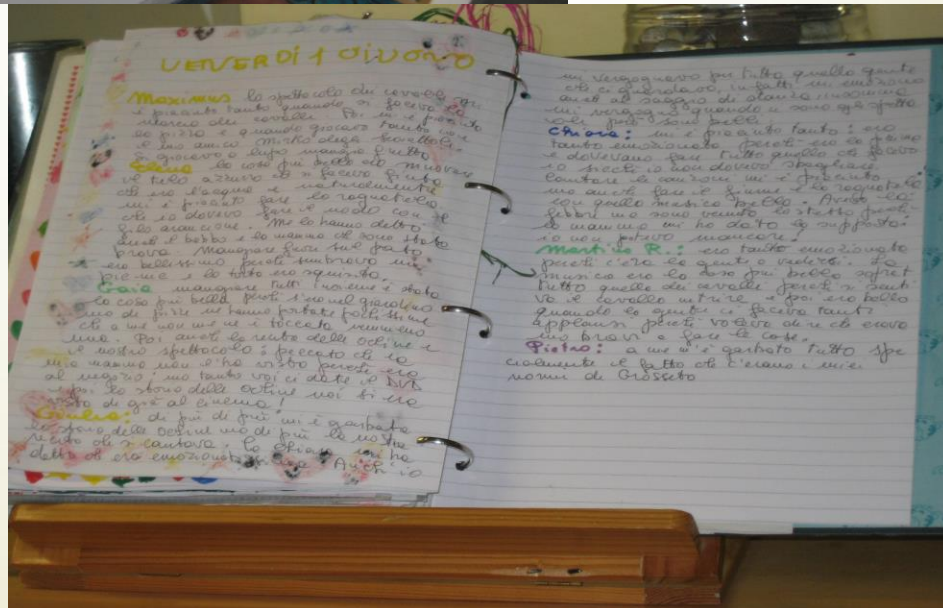 VENERDÌ 1 GIUGNO
Maximus lo spettacolo dei cavalli mi
è piaciuto tanto quando si faceva la
marcia dei cavalli. Poi mi è piaciuta
la pizza e quando giocavo tanto con
il mio amico Mirko degli
si giocava a lupo mangia frutta
Elena la cosa più bella era muovere
il telo azzurro che si faceva finta
che era l'acqua e naturalmente
mi è piaciuto fare la ragnatela
che io dovevo fare il nodo con il
filo arancione. Me lo hanno detto
anche il babbo e la mamma che sono stata
brava. Mangiare fuori sul prato
era bellissimo perché sembrava un
pic-nic e la torta era squisita.
Gaia mangiare tutti insieme è stata
la cosa più bella, però lì nel giardino
ma di pizze ne hanno portate pochissime
che a me non me ne è toccata nemmeno
una. Poi anche la renba delle ocline e
il nostro spettacolo: peccato che la
mia mamma non l'ha visto perché era
al negozio ma tanto voi ci date il DVD
e poi la storia delle ocline noi si era
visto di già al cinema!
Giulia: di più di più mi è garbata
la storia delle ocline ma di più la nostra
recita che si cantava. La Chiara mi ha
detto che era emozionata Anch'io
mi vergognavo per tutta quella gente
che ci guardava, infatti mi emoziono
anche al saggio di danza insomma
mi vergogno quando ci sono gli spetta
coli però sono belli
Chiara: mi è piaciuto tanto: ero
tanto emozionata perché ero la prima
e dovevano fare tutto quello che facevo
io sicché io non dovevo sbagliare.
Cantare le canzoni mi è piaciuto
ma anche fare il fiume e la ragnatela
con quella musica bella. Avevo la
febbre ma sono venuta lo stesso perché
la mamma mi ha dato la supposta:
io non potevo mancare!
Martino R.: ero tanto emozionato
perché c'era la gente a vederci. La
musica era la cosa più bella soprat
tutto quella dei cavalli perché si senti
va il cavallo nitrire e poi era bello
quando la gente ci faceva tanti
applausi perché voleva dire che erava
mo bravi a fare le cose.
Pietro: a me mi è garbato tutto spe
cialmente il fatto che c'erano i miei
nonni di Grosseto